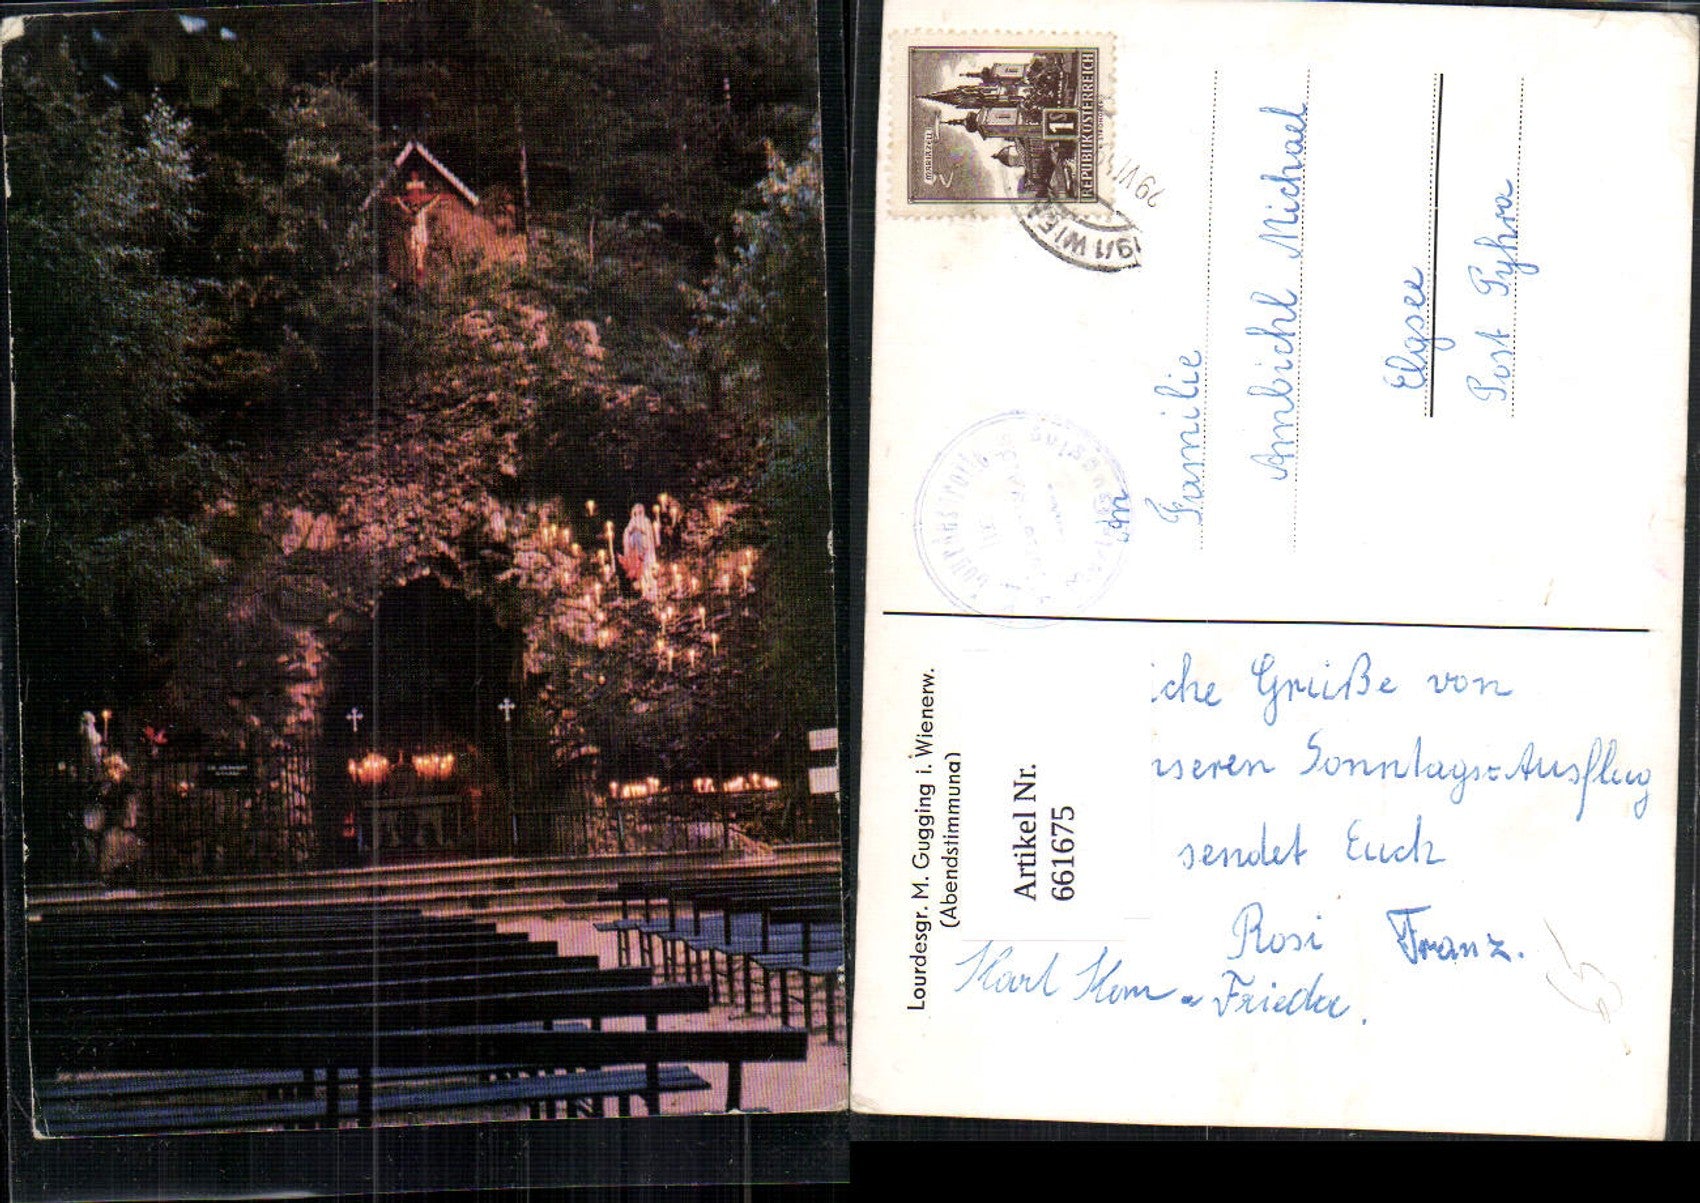 REPUBLIK ÖSTERREICH
MARIAZELL
1S
19/1 WIEN
29.VI.
LOURDESGROTTE
An
Familie
Ambichl Michael
Elgsee
Post Pyhra
Lourdesgr. M. Gugging i. Wienerw.
(Abendstimmung)
Artikel Nr.
661675
iche Grüße von
nseren Sonntags=Ausflug
sendet Euch
Rosi Franz.
Karl